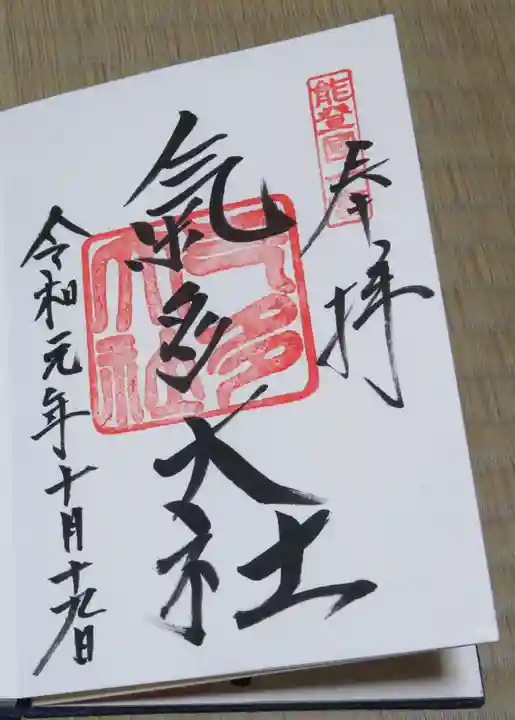 奉拝
能登國一宮
氣多大社
気多大社
令和元年十月十九日